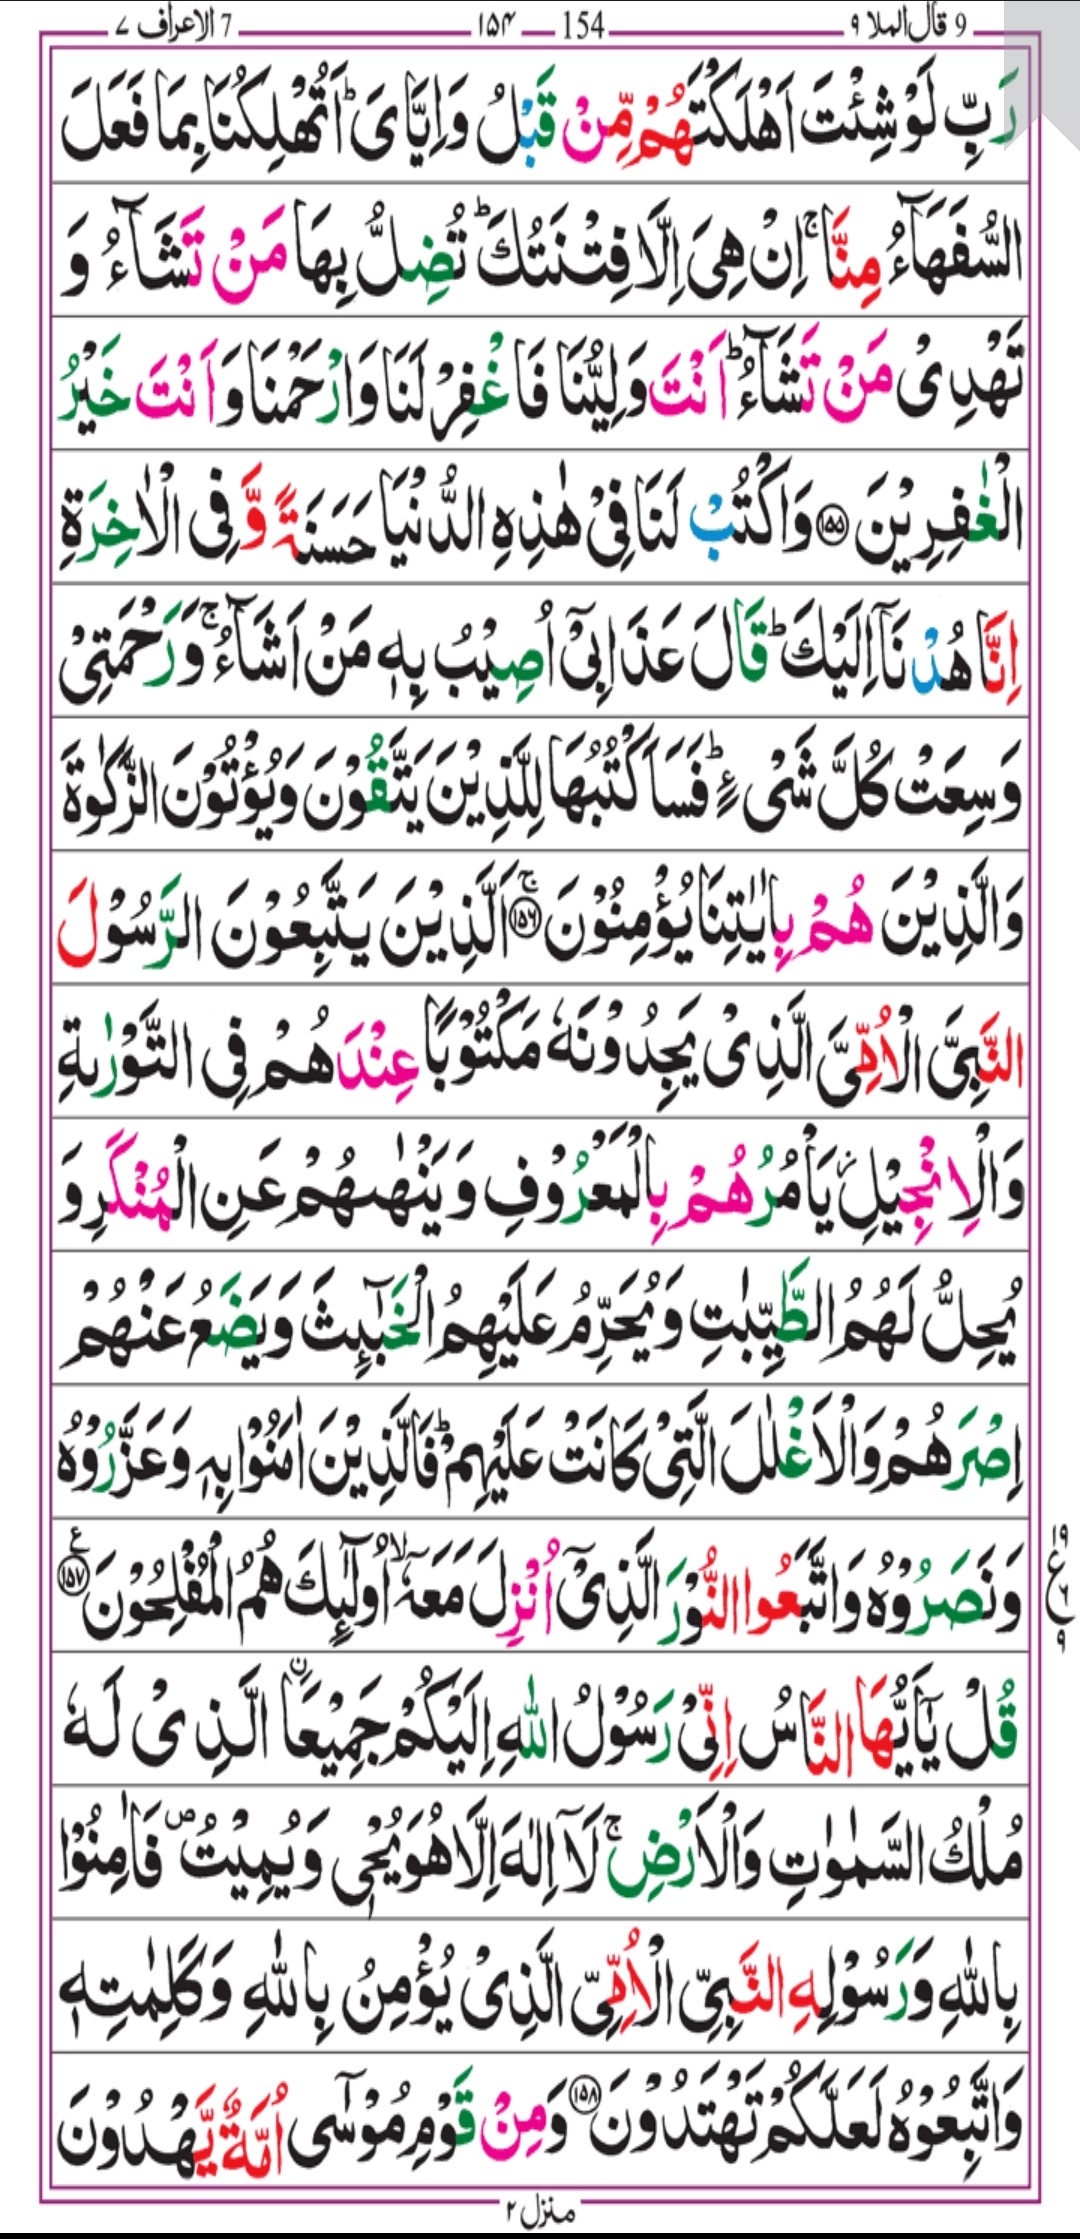 9 قال الملا ۹ — 154 — ۱۵۴ — 7 الاعراف ۷
رَبِّ لَوْ شِئْتَ اَهْلَكْتَهُمْ مِّنْ قَبْلُ وَاِيَّایَ ؕ اَتُهْلِكُنَا بِمَا فَعَلَ
السُّفَهَآءُ مِنَّا ۚ اِنْ هِیَ اِلَّا فِتْنَتُكَ ؕ تُضِلُّ بِهَا مَنْ تَشَآءُ وَ
تَهْدِیْ مَنْ تَشَآءُ ؕ اَنْتَ وَلِيُّنَا فَاغْفِرْ لَنَا وَارْحَمْنَا وَاَنْتَ خَيْرُ
الْغٰفِرِيْنَ ۝۱۵۵ وَاكْتُبْ لَنَا فِیْ هٰذِهِ الدُّنْيَا حَسَنَةً وَّ فِی الْاٰخِرَةِ
اِنَّا هُدْنَاۤ اِلَيْكَ ؕ قَالَ عَذَابِیْۤ اُصِيْبُ بِهٖ مَنْ اَشَآءُ ۚ وَرَحْمَتِیْ
وَسِعَتْ كُلَّ شَیْءٍ ؕ فَسَاَكْتُبُهَا لِلَّذِيْنَ يَتَّقُوْنَ وَيُؤْتُوْنَ الزَّكٰوةَ
وَالَّذِيْنَ هُمْ بِاٰيٰتِنَا يُؤْمِنُوْنَ ۝۱۵۶ ۚ اَلَّذِيْنَ يَتَّبِعُوْنَ الرَّسُوْلَ
النَّبِیَّ الْاُمِّیَّ الَّذِیْ يَجِدُوْنَهٗ مَكْتُوْبًا عِنْدَهُمْ فِی التَّوْرٰىةِ
وَالْاِنْجِيْلِ ؗ يَاْمُرُهُمْ بِالْمَعْرُوْفِ وَيَنْهٰىهُمْ عَنِ الْمُنْكَرِ وَ
يُحِلُّ لَهُمُ الطَّيِّبٰتِ وَيُحَرِّمُ عَلَيْهِمُ الْخَبٰٓئِثَ وَيَضَعُ عَنْهُمْ
اِصْرَهُمْ وَالْاَغْلٰلَ الَّتِیْ كَانَتْ عَلَيْهِمْ ؕ فَالَّذِيْنَ اٰمَنُوْا بِهٖ وَعَزَّرُوْهُ
وَنَصَرُوْهُ وَاتَّبَعُوا النُّوْرَ الَّذِیْۤ اُنْزِلَ مَعَهٗۤ ۙ اُولٰٓئِكَ هُمُ الْمُفْلِحُوْنَ ۝۱۵۷ ع
۱۹ ع ۶ ۹
قُلْ يٰۤاَيُّهَا النَّاسُ اِنِّیْ رَسُوْلُ اللّٰهِ اِلَيْكُمْ جَمِيْعًا ۨ الَّذِیْ لَهٗ
مُلْكُ السَّمٰوٰتِ وَالْاَرْضِ ۚ لَاۤ اِلٰهَ اِلَّا هُوَ يُحْیٖ وَيُمِيْتُ ۪ فَاٰمِنُوْا
بِاللّٰهِ وَرَسُوْلِهِ النَّبِیِّ الْاُمِّیِّ الَّذِیْ يُؤْمِنُ بِاللّٰهِ وَكَلِمٰتِهٖ
وَاتَّبِعُوْهُ لَعَلَّكُمْ تَهْتَدُوْنَ ۝۱۵۸ وَمِنْ قَوْمِ مُوْسٰۤی اُمَّةٌ يَّهْدُوْنَ
منزل ۲